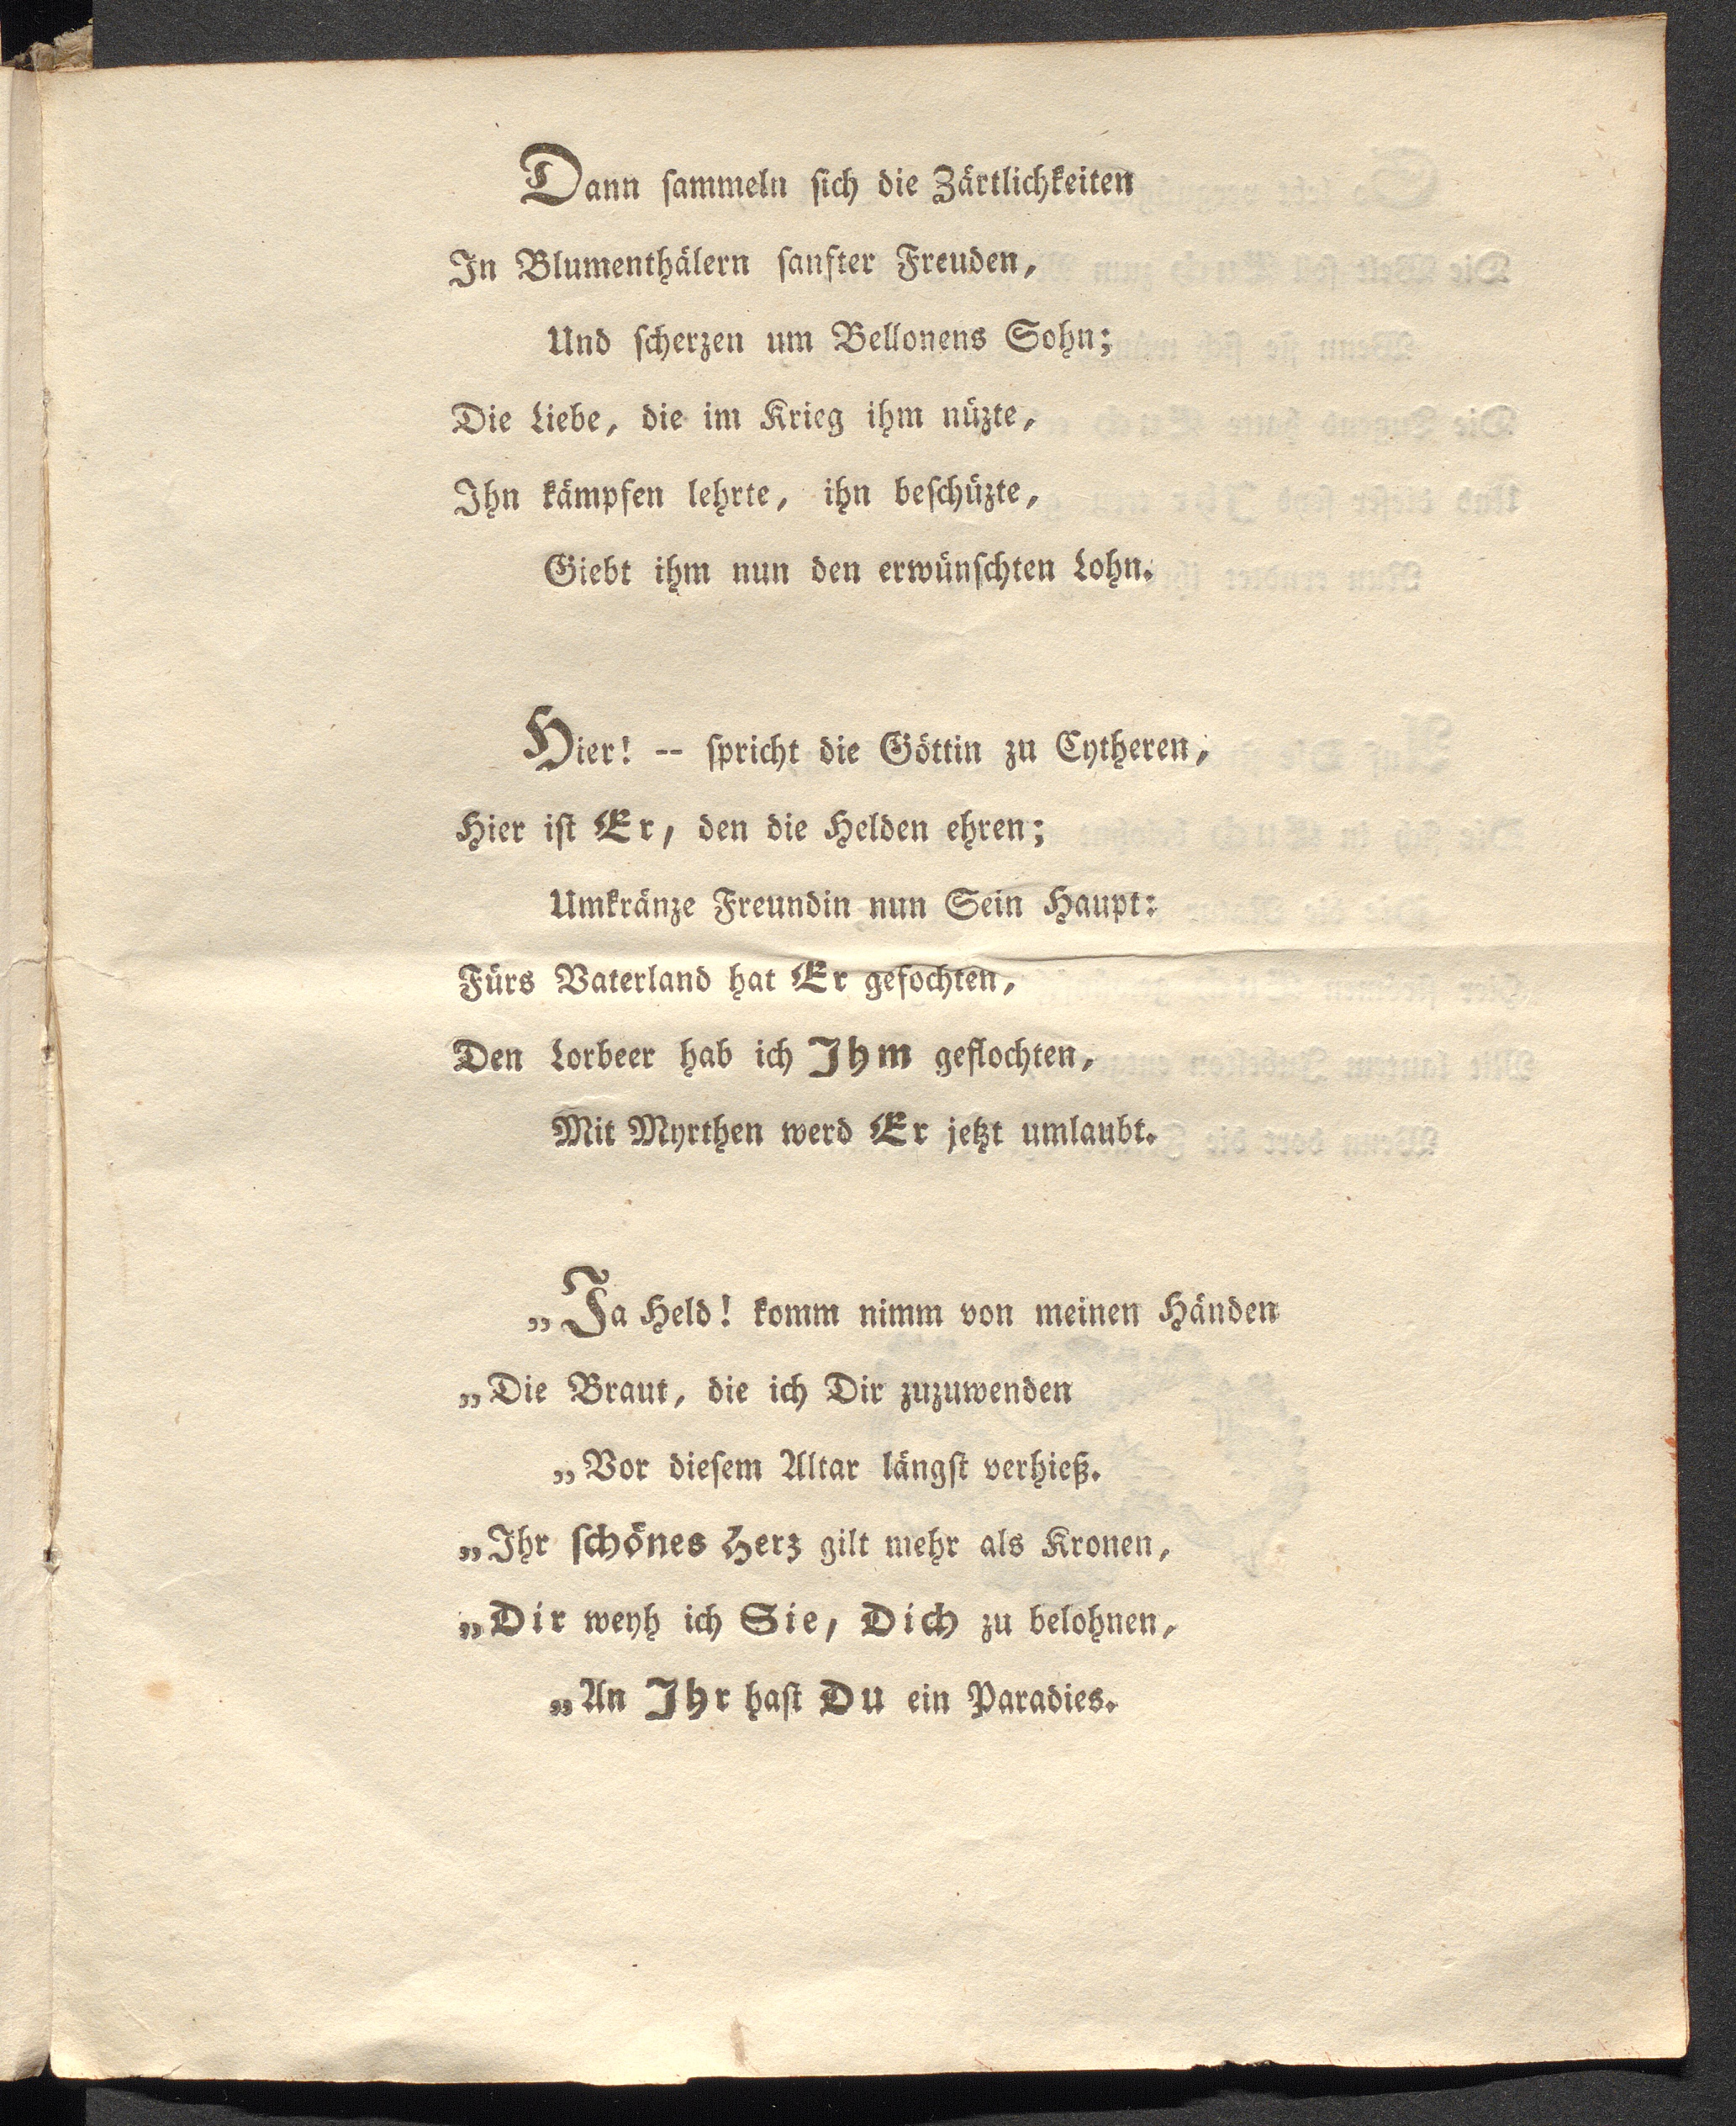 Dann ſammeln ſich die Zärtlichkeiten
In Blumenthälern ſanfter Freuden,
Und ſcherzen um Bellonens Sohn;
Die Liebe, die im Krieg ihm nüzte,
Ihn kämpfen lehrte, ihn beſchüzte,
Giebt ihm nun den erwünſchten Lohn.
Hier! -- ſpricht die Göttin zu Cytheren,
Hier iſt Er, den die Helden ehren;
Umkränze Freundin nun Sein Haupt:
Fürs Vaterland hat Er gefochten,
Den Lorbeer hab ich Ihm geflochten,
Mit Myrthen werd Er jetzt umlaubt.
„Ja Held! komm nimm von meinen Händen
„Die Braut, die ich Dir zuzuwenden
„Vor dieſem Altar längſt verhieß.
„Ihr ſchönes Herz gilt mehr als Kronen,
„Dir weyh ich Sie, Dich zu belohnen,
„An Ihr haſt Du ein Paradies.